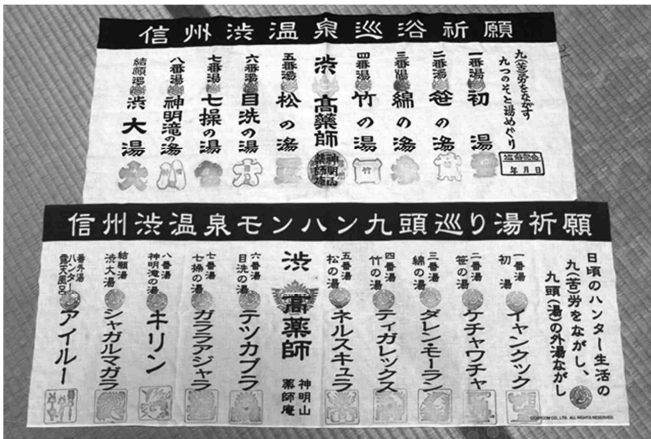 信州渋温泉巡浴祈願
九(苦)労をながす
九つのそと湯めぐり
年 月 日
一番湯 初湯
二番湯 笹の湯
三番湯 綿の湯
四番湯 竹の湯
渋 高薬師
神明山
薬師庵
五番湯 松の湯
六番湯 目洗の湯
七番湯 七操の湯
八番湯 神明滝の湯
結願湯 渋大湯
信州渋温泉モンハン九頭巡り湯祈願
日頃のハンター生活の
九(苦)労をながし、
九頭(湯)の外湯ながし
一番湯
初湯
イャンクック
二番湯
笹の湯
ケチャワチャ
三番湯
綿の湯
ダレン・モーラン
四番湯
竹の湯
ティガレックス
五番湯
松の湯
ネルスキュラ
渋 高薬師
神明山
薬師庵
六番湯
目洗の湯
テツカブラ
七番湯
七操の湯
ガララアジャラ
八番湯
神明滝の湯
キリン
結願湯
渋大湯
シャガルマガラ
番外湯
ハンター
露天風呂
アイルー
©CAPCOM CO., LTD. ALL RIGHTS RESERVED.